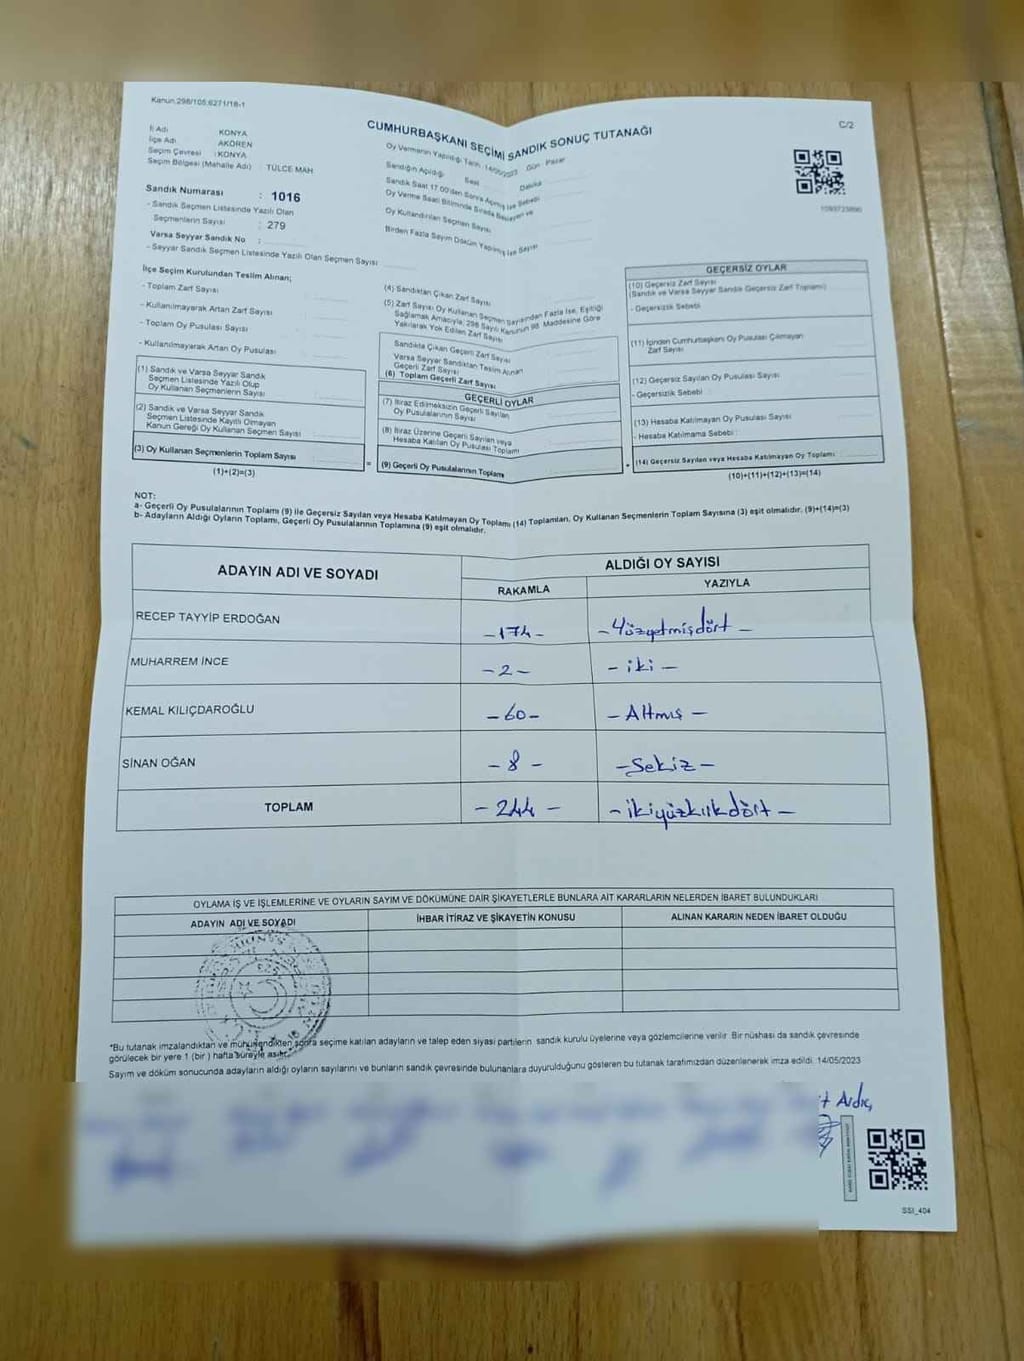 Kanun.298/105,6271/18-1
C/2
CUMHURBAŞKANI SEÇİMİ SANDIK SONUÇ TUTANAĞI
İl Adı KONYA
İlçe Adı AKÖREN
Seçim Çevresi : KONYA
Seçim Bölgesi (Mahalle Adı) : TÜLCE MAH
Oy Vermenin Yapıldığı Tarih : 14/05/2023 Gün : Pazar
Sandığın Açıldığı Saat Dakika
Sandık Saat 17.00'den Sonra Açılmış İse Sebebi
Oy Verme Saati Bitiminde Sırada Bekleyen ve
Oy Kullandırılan Seçmen Sayısı
Birden Fazla Sayım Döküm Yapılmış İse Sayısı
Sandık Numarası : 1016
- Sandık Seçmen Listesinde Yazılı Olan
Seçmenlerin Sayısı : 279
Varsa Seyyar Sandık No :
- Seyyar Sandık Seçmen Listesinde Yazılı Olan Seçmen Sayısı
İlçe Seçim Kurulundan Teslim Alınan;
- Toplam Zarf Sayısı
- Kullanılmayarak Artan Zarf Sayısı
- Toplam Oy Pusulası Sayısı
- Kullanılmayarak Artan Oy Pusulası
(1) Sandık ve Varsa Seyyar Sandık
Seçmen Listesinde Yazılı Olup
Oy Kullanan Seçmenlerin Sayısı
(2) Sandık ve Varsa Seyyar Sandık
Seçmen Listesinde Kayıtlı Olmayan
Kanun Gereği Oy Kullanan Seçmen Sayısı
(3) Oy Kullanan Seçmenlerin Toplam Sayısı
(1)+(2)=(3)
(4) Sandıktan Çıkan Zarf Sayısı
(5) Zarf Sayısı Oy Kullanan Seçmen Sayısından Fazla İse, Eşitliği
Sağlamak Amacıyla, 298 Sayılı Kanunun 98. Maddesine Göre
Yakılarak Yok Edilen Zarf Sayısı
Sandıkta Çıkan Geçerli Zarf Sayısı
Varsa Seyyar Sandıktan Teslim Alınan
Geçerli Zarf Sayısı
(6) Toplam Geçerli Zarf Sayısı
GEÇERLİ OYLAR
(7) İtiraz Edilmeksizin Geçerli Sayılan
Oy Pusulalarının Sayısı
(8) İtiraz Üzerine Geçerli Sayılan veya
Hesaba Katılan Oy Pusulası Toplamı
= (9) Geçerli Oy Pusulalarının Toplamı
GEÇERSİZ OYLAR
(10) Geçersiz Zarf Sayısı
(Sandık ve Varsa Seyyar Sandık Geçersiz Zarf Toplamı)
- Geçersizlik Sebebi
(11) İçinden Cumhurbaşkanı Oy Pusulası Çıkmayan
Zarf Sayısı
(12) Geçersiz Sayılan Oy Pusulası Sayısı
- Geçersizlik Sebebi
(13) Hesaba Katılmayan Oy Pusulası Sayısı
- Hesaba Katılmama Sebebi
+ (14) Geçersiz Sayılan veya Hesaba Katılmayan Oy Toplamı
(10)+(11)+(12)+(13)=(14)
NOT:
a- Geçerli Oy Pusulalarının Toplamı (9) ile Geçersiz Sayılan veya Hesaba Katılmayan Oy Toplamı (14) Toplamları, Oy Kullanan Seçmenlerin Toplam Sayısına (3) eşit olmalıdır. (9)+(14)=(3)
b- Adayların Aldığı Oyların Toplamı, Geçerli Oy Pusulalarının Toplamına (9) eşit olmalıdır.
ADAYIN ADI VE SOYADI ALDIĞI OY SAYISI
RAKAMLA YAZIYLA
RECEP TAYYİP ERDOĞAN -174- -Yüzyetmişdört-
MUHARREM İNCE -2- -iki-
KEMAL KILIÇDAROĞLU -60- -Altmış-
SİNAN OĞAN -8- -Sekiz-
TOPLAM -244- -ikiyüzkırkdört-
OYLAMA İŞ VE İŞLEMLERİNE VE OYLARIN SAYIM VE DÖKÜMÜNE DAİR ŞİKAYETLERLE BUNLARA AİT KARARLARIN NELERDEN İBARET BULUNDUKLARI
ADAYIN ADI VE SOYADI İHBAR İTİRAZ VE ŞİKAYETİN KONUSU ALINAN KARARIN NEDEN İBARET OLDUĞU
*Bu tutanak imzalandıktan ve mühürlendikten sonra seçime katılan adayların ve talep eden siyasi partilerin sandık kurulu üyelerine veya gözlemcilerine verilir. Bir nüshası da sandık çevresinde
görülecek bir yere 1 (bir) hafta süreyle asılır.
Sayım ve döküm sonucunda adayların aldığı oyların sayılarını ve bunların sandık çevresinde bulunanlara duyurulduğunu gösteren bu tutanak tarafımızdan düzenlenerek imza edildi. 14/05/2023
SSI_404